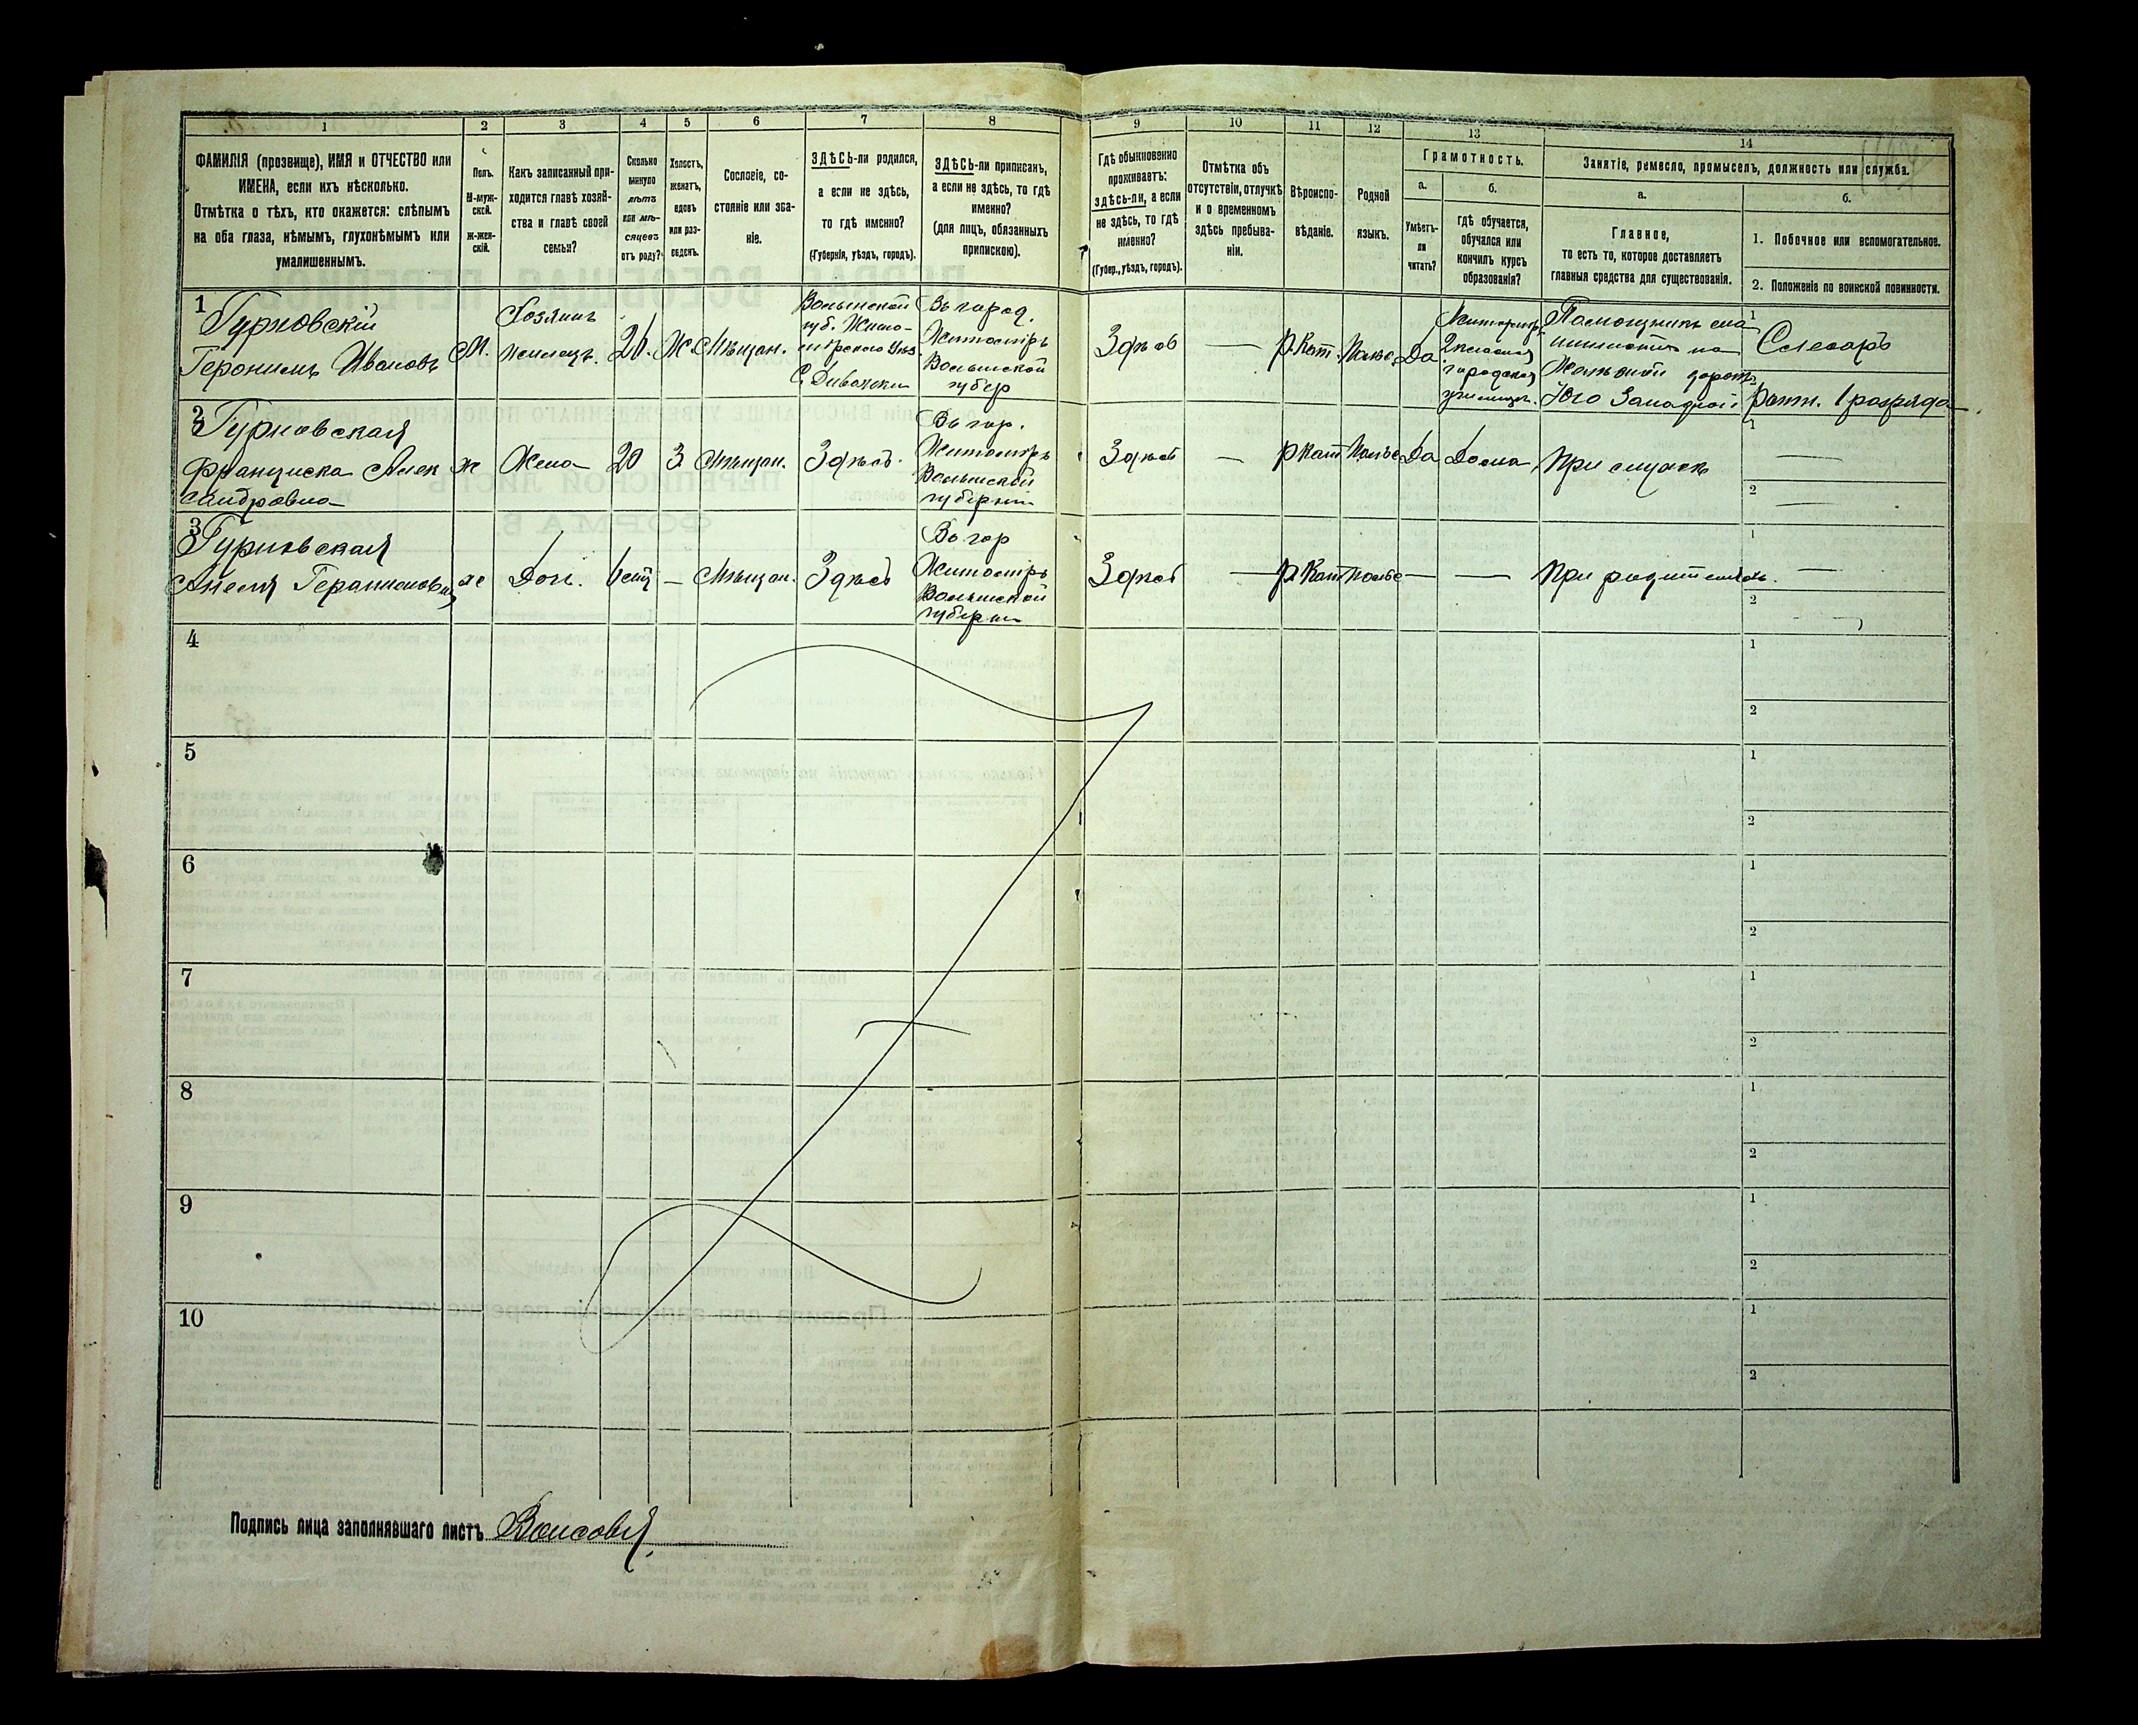 1
2
3
4
5
6
7
8
9
10
11
12
13
14
ФАМИЛІЯ (прозвище), ИМЯ и ОТЧЕСТВО или
ИМЕНА, если ихъ нѣсколько.
Отмѣтка о тѣхъ, кто окажется: слѣпымъ
на оба глаза, нѣмымъ, глухонѣмымъ или
умалишеннымъ.
Полъ.
М-муж-
ской.
Ж-жен-
скій.
Какъ записанный при-
ходится главѣ хозяй-
ства и главѣ своей
семьи?
Сколько
минуло
лѣтъ
или мѣ-
сяцевъ
отъ роду?
Холостъ,
женатъ,
вдовъ
или раз-
веденъ.
Сословіе, со-
стояніе или зва-
ніе.
ЗДѢСЬ-ли родился,
а если не здѣсь,
то гдѣ именно?
(Губернія, уѣздъ, городъ).
ЗДѢСЬ-ли приписанъ,
а если не здѣсь, то гдѣ
именно?
(для лицъ, обязанныхъ
припискою).
Гдѣ обыкновенно
проживаетъ:
здѣсь-ли, а если
не здѣсь, то гдѣ
именно?
(Губер., уѣздъ, городъ).
Отмѣтка объ
отсутствіи, отлучкѣ
и о временномъ
здѣсь пребыва-
ніи.
Вѣроиспо-
вѣданіе.
Родной
языкъ.
Грамотность.
а.
Умѣетъ-
ли
читать?
б.
гдѣ обучается,
обучался или
кончилъ курсъ
образованія?
Занятіе, ремесло, промыселъ, должность или служба.
а.
Главное,
то есть то, которое доставляетъ
главныя средства для существованія.
б.
1. Побочное или вспомогательное.
2. Положеніе по воинской повинности.
1
Гурновскій
Геронимъ Ивановъ
М.
Хозяинъ
жилецъ.
26.
Ж.
Мѣщан.
Волынской
губ. Жито-
мірскаго Уѣз.
С.
Въ город.
Житомірѣ
Волынской
губер
Здѣсь
—
р.Кат.
Польс.
Да
2 классное
городское
училище.
Помощникъ ма-
шиниста на
Желѣзной дорогѣ
Юго Западной
1
Слесарь
Ратн. 1 разряда
2
Гурновская
Франциска Алек
сандровна
ж
Жена
20
З
Мѣщан.
Здѣсь.
Въ гор.
Житомірѣ
Волынской
губерніи
Здѣсь
—
р Кат
Польс
Да
Дома
При мужѣ
1
—
2
—
3
Гурновская
Анеля Геронимовна
ж
Дочь.
6 мѣс
—
Мѣщан.
Здѣсь
Въ гор
Житомірѣ
Волынской
губерни
Здѣсь
—
р.Кат
Польс
—
—
При родителяхъ.
1
—
2
4
1
2
5
1
2
6
1
2
7
1
2
8
1
2
9
1
2
10
1
2
Подпись лица заполнявшаго листъ